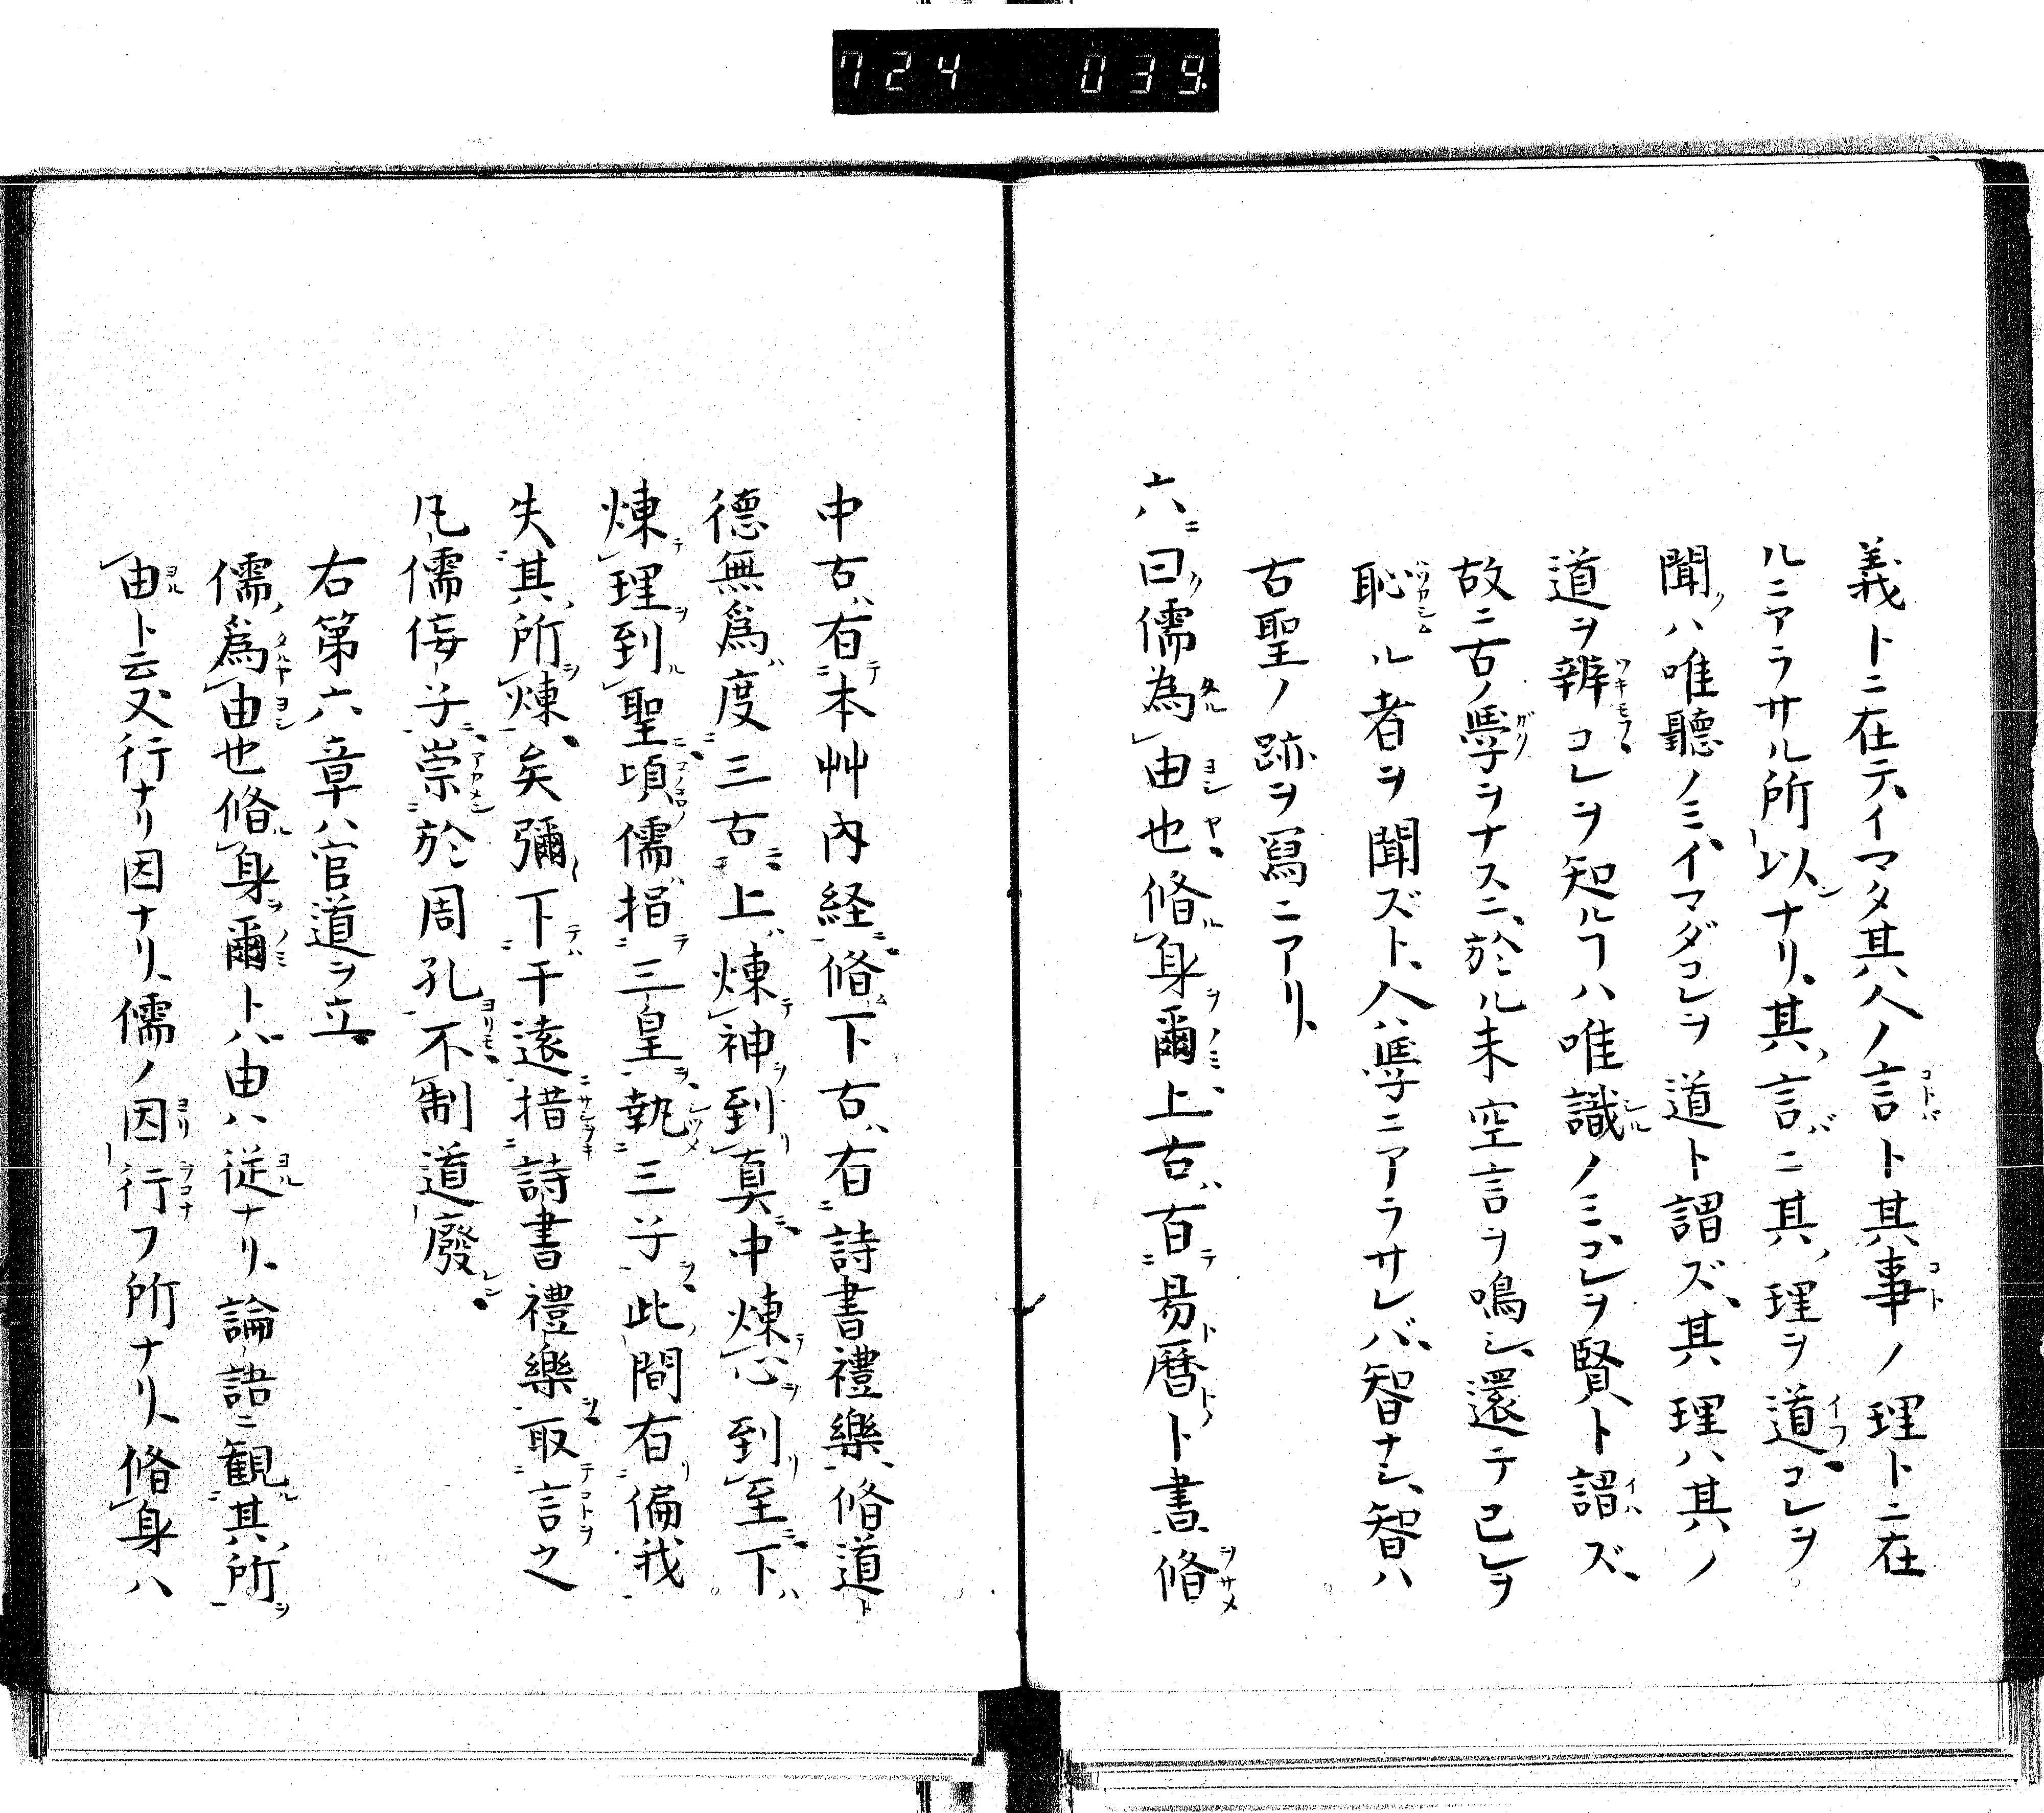 724 039.
義トニ在テ、イマタ其人ノ言ト其事ノ理トニ在
ルニアラサル所以ナリ、其言ニ其理ヲ道コレヲ
聞ハ唯聽ノミ、イマダコレヲ道ト謂ズ、其理ハ其ノ
道ヲ辨コレヲ知ルヿハ唯識ノミ、コレヲ賢ト謂ズ、
故ニ古ノ學ヲナスニ、於ル未空言ヲ鳴シ、還テ己レヲ
恥ル者ヲ聞ズト、人學ニアラサレバ、智ナシ、智ハ
古聖ノ跡ヲ寫ニアリ、
六ニ曰儒為由也脩身爾上古有易暦ト書脩
中古有本艸内経脩下古有詩書禮樂脩道
德無爲度三古上煉神到真中煉心到至下
煉理到聖頃儒捐三皇執三子此間有偏我
失其所煉矣彌下干遠措詩書禮樂取言之
凡儒侮子崇於周孔不制道廢
右第六章ハ官道ヲ立
儒爲由也脩身爾トハ由ハ従ナリ、論語ニ観其所
由ト云又行ナリ因ナリ、儒ノ因行フ所ナリ、脩身ハ